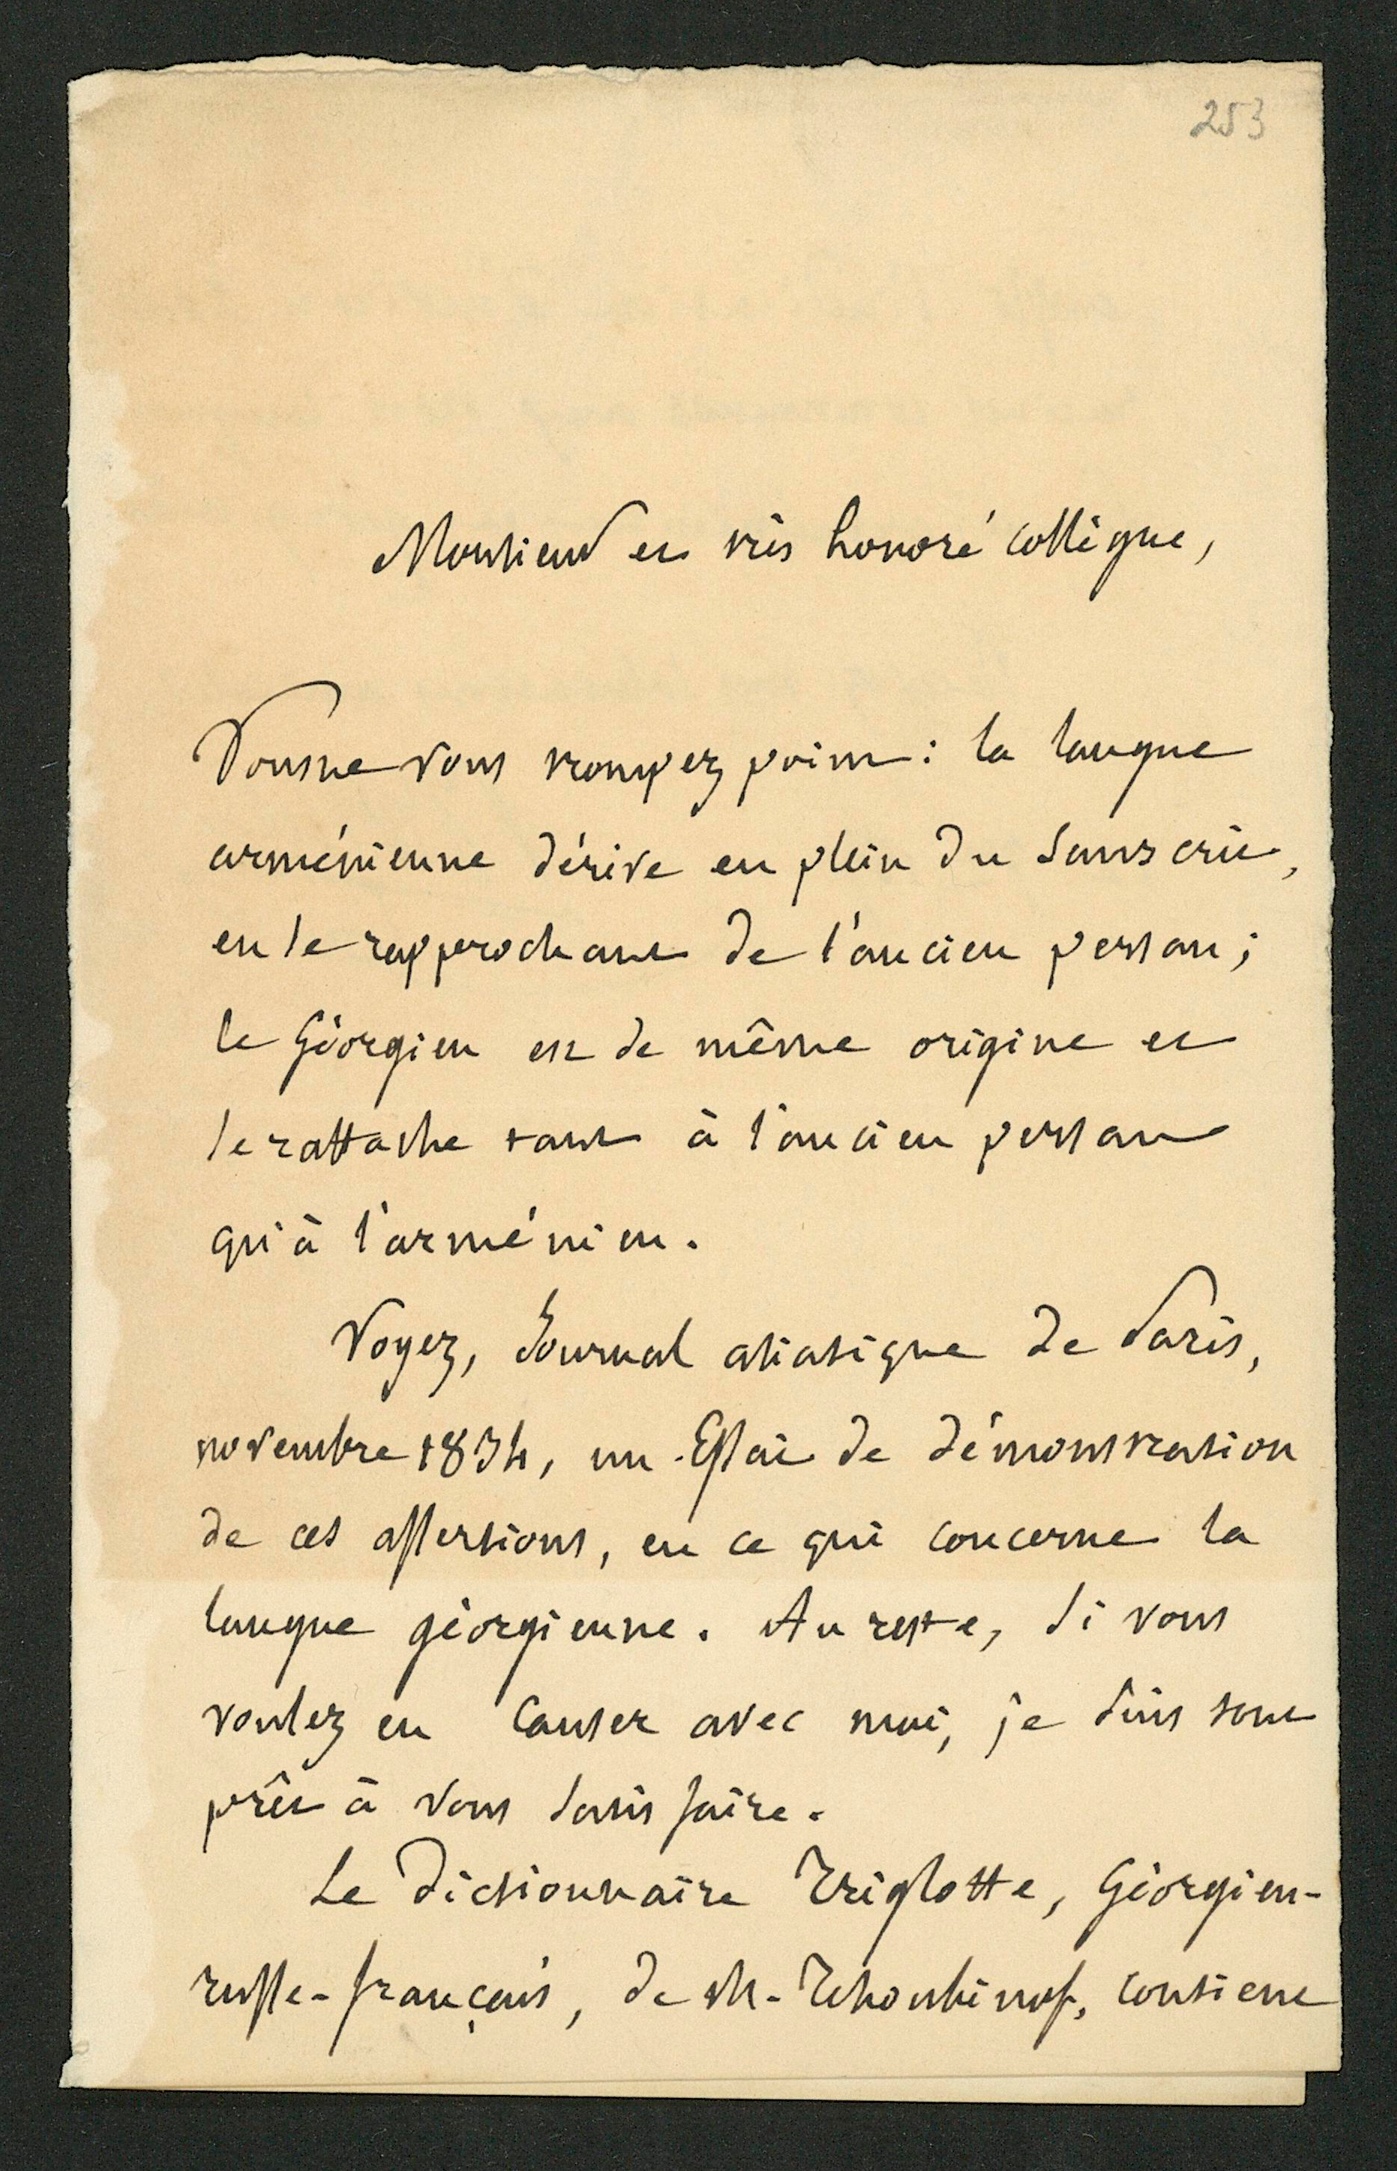 253
Monsieur et très honoré collègue,
Vous ne vous trompez point : la langue
arménienne dérive en plein du Sanscrit,
en se rapprochant de l'ancien persan ;
le Géorgien est de même origine et
se rattache tant à l'ancien persan
qu'à l'arménien.
Voyez, Journal asiatique de Paris,
novembre 1834, un Essai de démonstration
de ces assertions, en ce qui concerne la
langue géorgienne. Au reste, si vous
voulez en causer avec moi, je suis tout
prêt à vous satisfaire.
Le Dictionnaire Triglotte, Géorgien-
russe-français, de M. Tchoubinof, contient